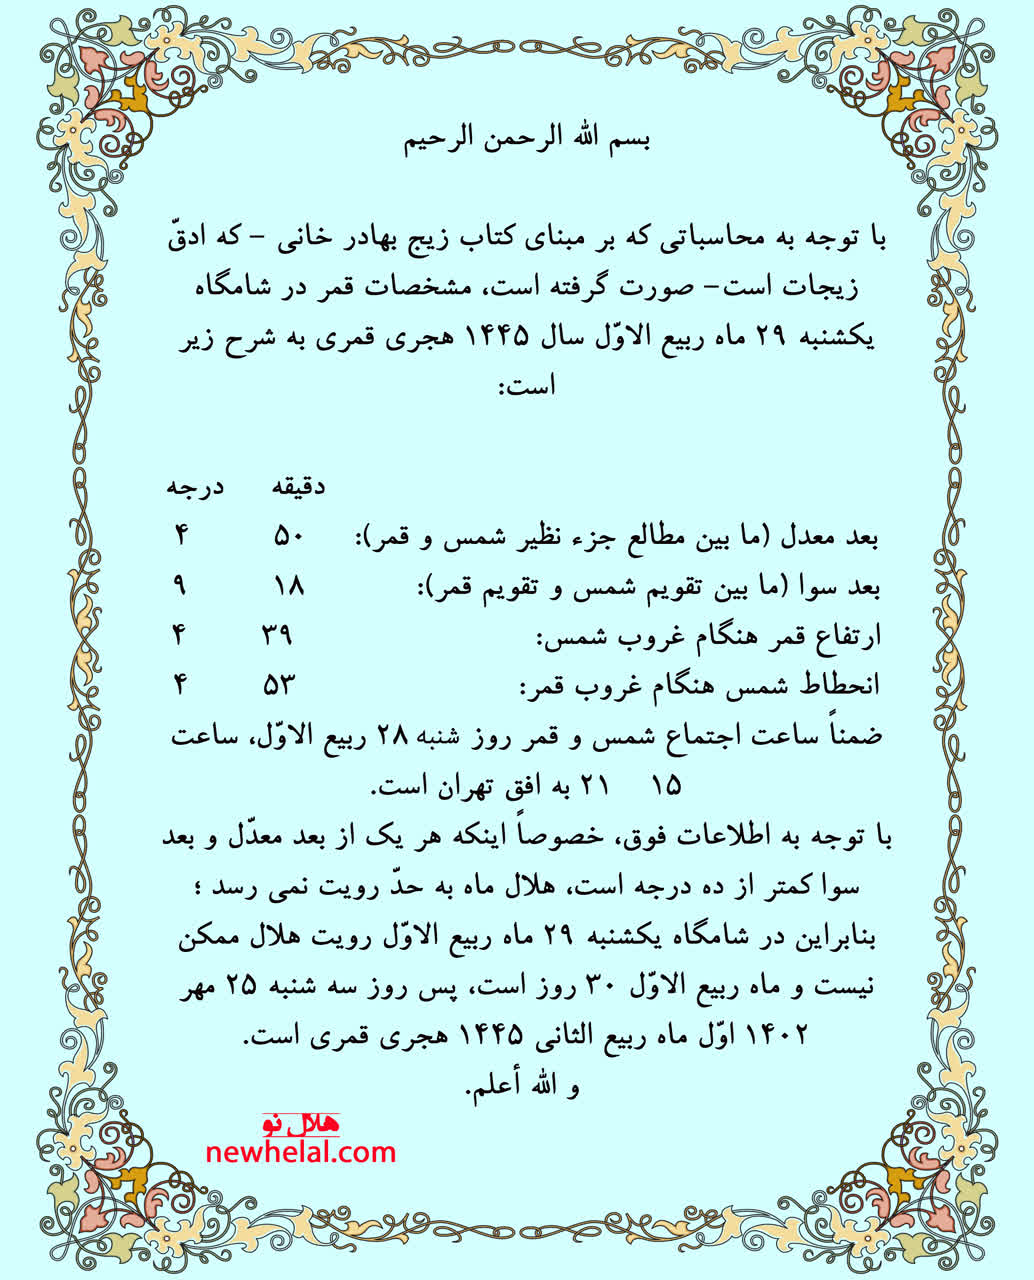 بسم الله الرحمن الرحیم
با توجه به محاسباتی که بر مبنای کتاب زیج بهادر خانی – که ادقّ
زیجات است– صورت گرفته است، مشخصات قمر در شامگاه
یکشنبه ۲۹ ماه ربیع الاوّل سال ۱۴۴۵ هجری قمری به شرح زیر
است:
دقیقه درجه
بعد معدل (ما بین مطالع جزء نظیر شمس و قمر): ۵۰ ۴
بعد سوا (ما بین تقویم شمس و تقویم قمر): ۱۸ ۹
ارتفاع قمر هنگام غروب شمس: ۳۹ ۴
انحطاط شمس هنگام غروب قمر: ۵۳ ۴
ضمناً ساعت اجتماع شمس و قمر روز شنبه ۲۸ ربیع الاوّل، ساعت
۱۵ ۲۱ به افق تهران است.
با توجه به اطلاعات فوق، خصوصاً اینکه هر یک از بعد معدّل و بعد
سوا کمتر از ده درجه است، هلال ماه به حدّ رویت نمی رسد ؛
بنابراین در شامگاه یکشنبه ۲۹ ماه ربیع الاوّل رویت هلال ممکن
نیست و ماه ربیع الاوّل ۳۰ روز است، پس روز سه شنبه ۲۵ مهر
۱۴۰۲ اوّل ماه ربیع الثانی ۱۴۴۵ هجری قمری است.
و الله أعلم.
هلال نو
newhelal.com